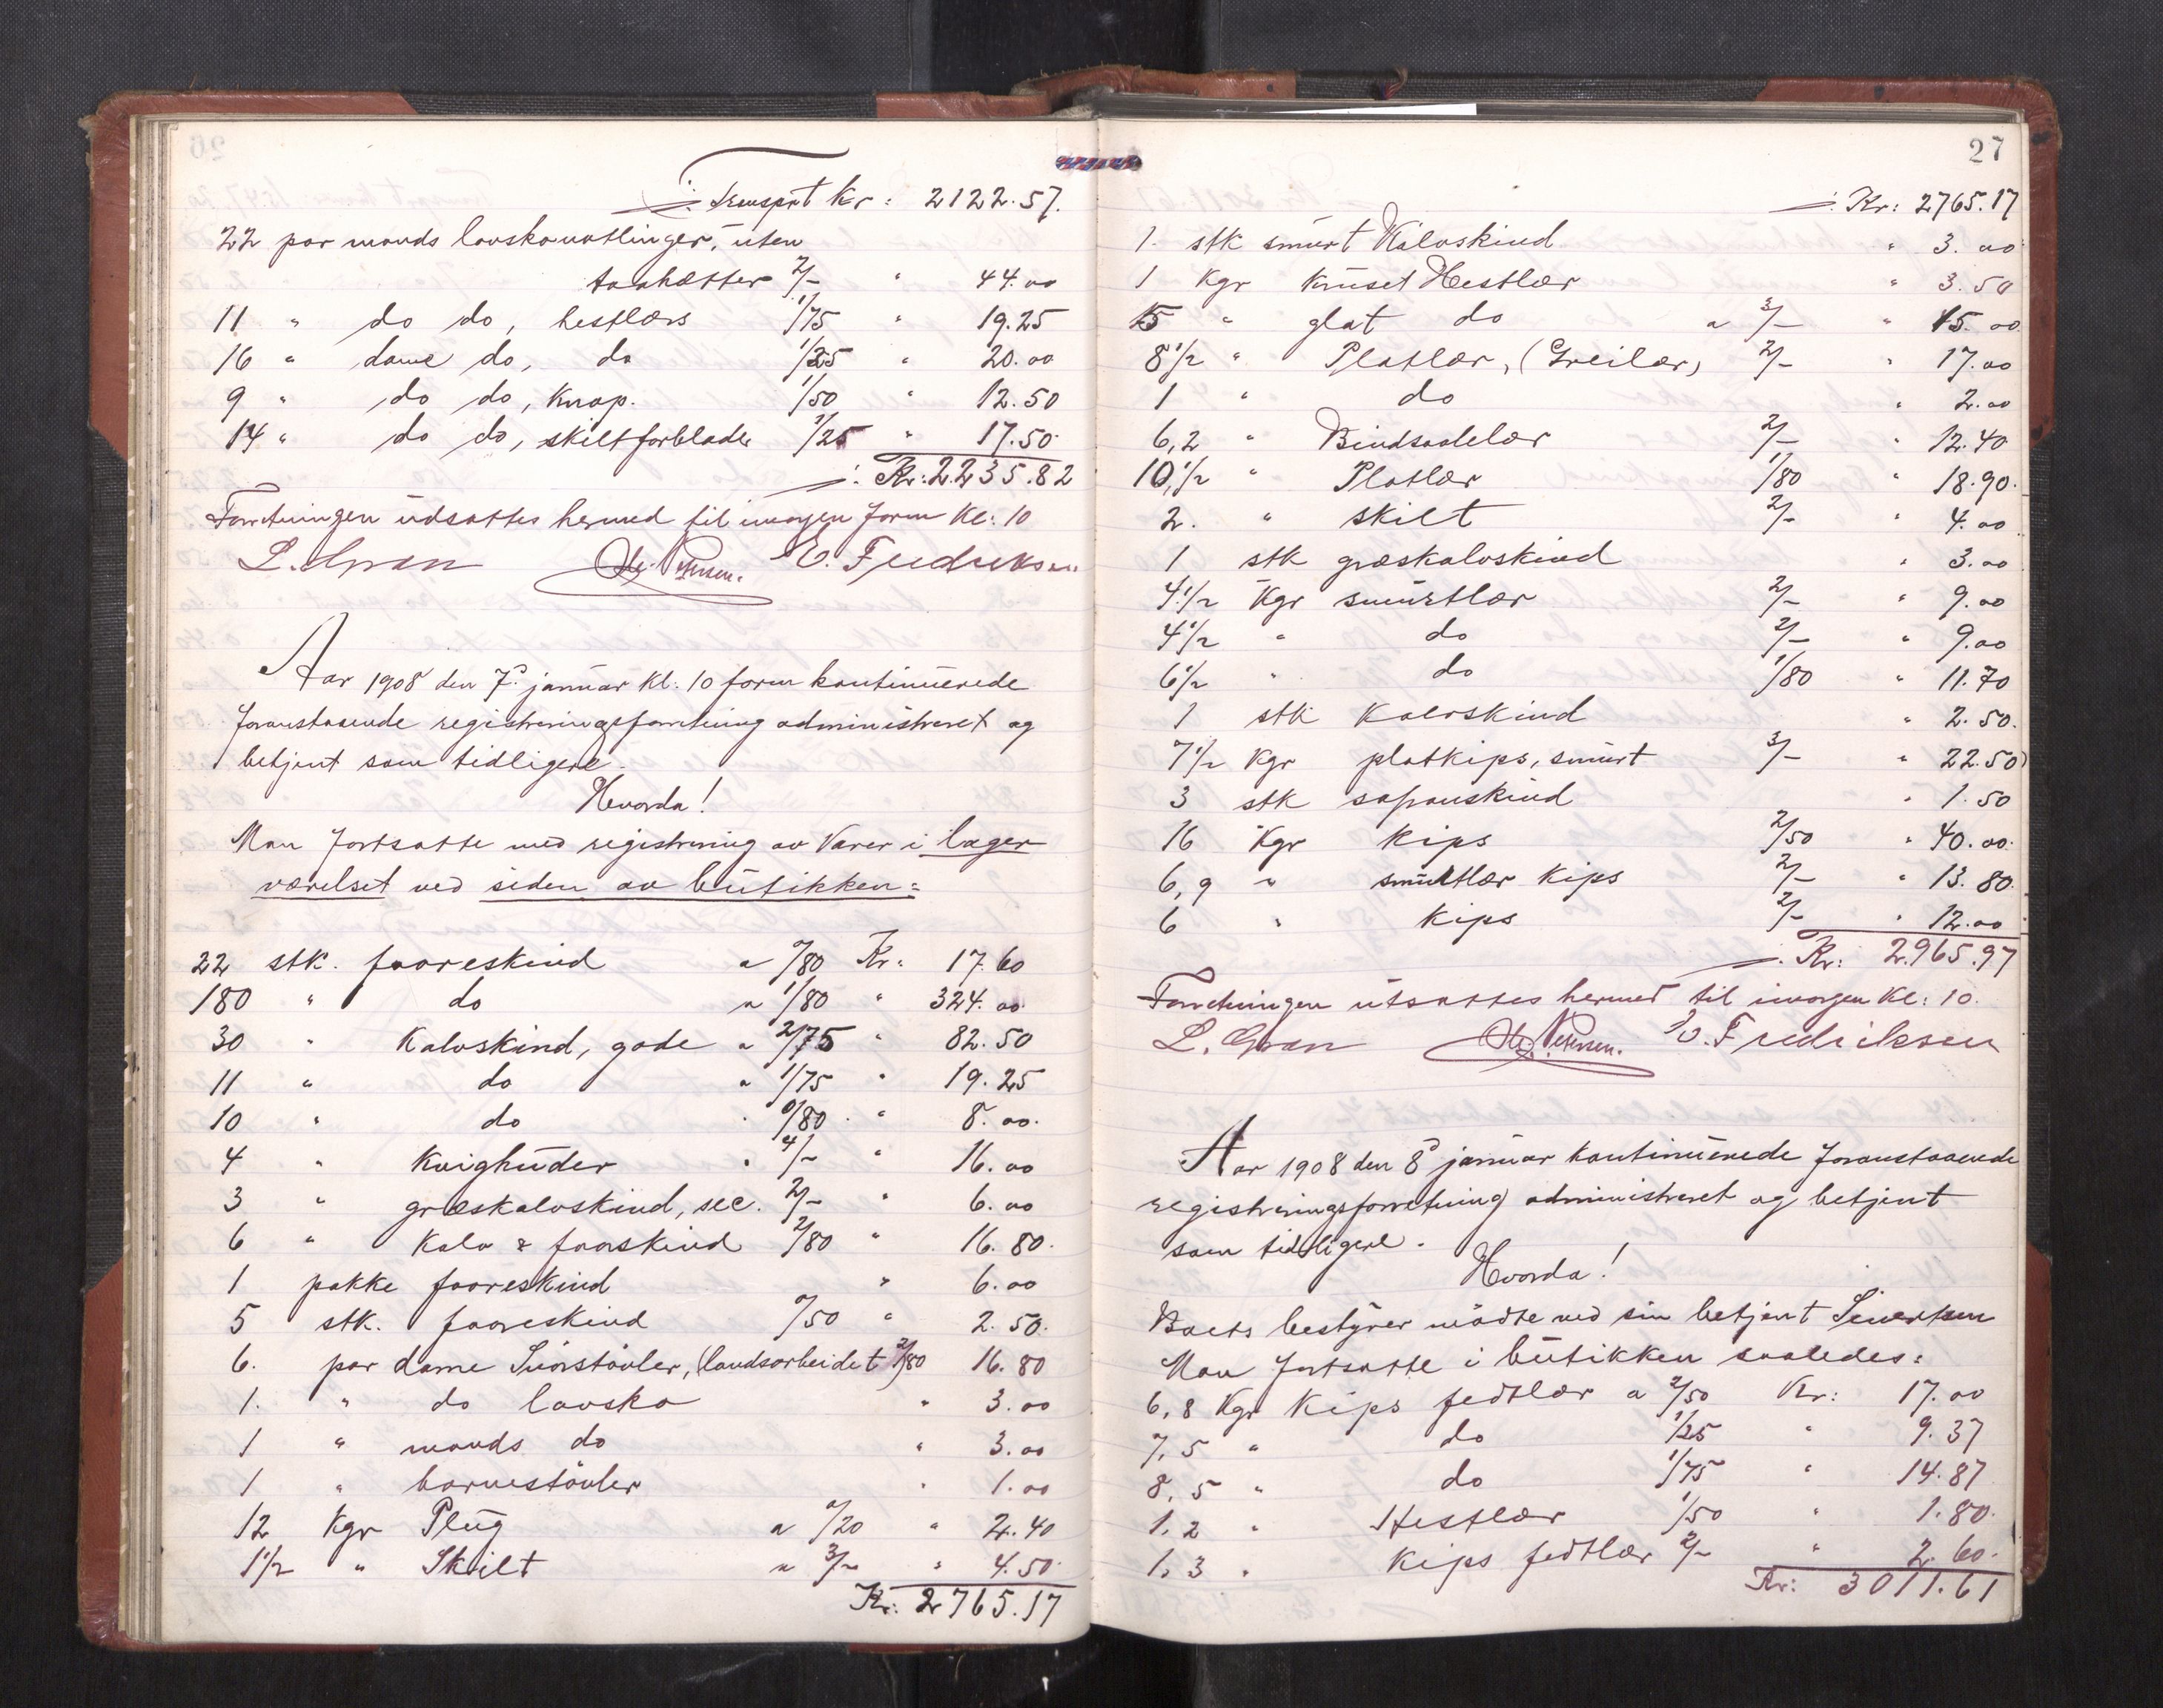 Transport Kr: 2122.57.
22 par mands lavskanotlinger, uten
taahætter 2/- " 44.00
11 " do do, hestlærs 1/75 " 19.25
16 " dame do, do 1/25 " 20.00
9 " do do, knap. 1/50 " 12.50
14 " do do, skiltforblade 1/25 " 17.50
Kr: 2235.82
Forretningen udsattes hermed til imorgen form Kl: 10
L. Gran Petersen. E. Fredriksen
Aar 1908 den 7de januar kl. 10 form kontinuerede
foranstaaende registreringsforretning administreret og
betjent som tidligere.
Hvorda!
Man fortsatte med registrering av Varer i lager
værelset ved siden av butikken:
22 stk. faareskind a 0/80 Kr: 17.60
180 " do a 1/80 " 324.00
30 " Kalvskind, gode a 2/75 " 82.50
11 " do a 1/75 " 19.25
10 " do " 0/80 " 8.00.
4 " Kvighuder " 4/- " 16.00
3 " græskalvskind, sec. 2/- " 6.00
6 " Kalv & faarskind 2/80 " 16.80.
1 pakke faareskind " 6.00
5 stk. faareskind 0/50 " 2.50.
6. par dame Snørstøvler, (landsarbeidet) 2/80 16.80
1. " do lavsko " 3.00
1 " mands do " 3.00
1 " barnestøvler " 1.00
12 Kgr Plug a 0/20 " 2.40
1 1/2 " Skilt a 3/- " 4.50
Kr: 2765.17
27
Kr: 2765.17
1. stk smurt Kalvskind " 3.00
1 Kgr Kruset Hestlær " 3.50
15 " glat do a 3/- " 45.00
8 1/2 " Platlær, (Greilær) 2/- " 17.00
1 " do " 2.00
6,2 " Bindsaalelær 2/- " 12.40
10,1/2 " Platlær 1/80 " 18.90.
2. " skilt 2/- " 4.00
1 stk græskalvskind " 3.00
4 1/2 Kgr smurtlær 2/- " 9.00
4 1/2 " do 2/- " 9.00
6 1/2 " do 1/80 " 11.70
1 stk Kalvskind " 2.50.
7 1/2 Kgr platkips, smurt 3/- " 22.50
3 stk safianskind " 1.50
16 Kgr Kips 2/50 " 40.00.
6,9 " smurtlær Kips 2/- " 13.80.
6 " Kips 2/- " 12.00
Kr: 2965.97
Forretningen utsattes hermed til imorgen Kl: 10.
L. Gran Petersen. E. Fredriksen
Aar 1908 den 8de januar kontinuerede foranstaaende
registreringsforretning administreret og betjent
som tidligere.
Hvorda!
Boets bestyrer mødte ved sin betjent Sivertsen
Man fortsatte i butikken saaledes:
6,8 Kgr Kips fedtlær a 2/50 Kr: 17.00
7,5 " do 1/25 " 9.37
8,5 " do 1/75 " 14.87
1,2 " Hestlær 1/50 " 1.80.
1,3 " Kips fedtlær 2/- " 2.60.
Kr: 3011.61